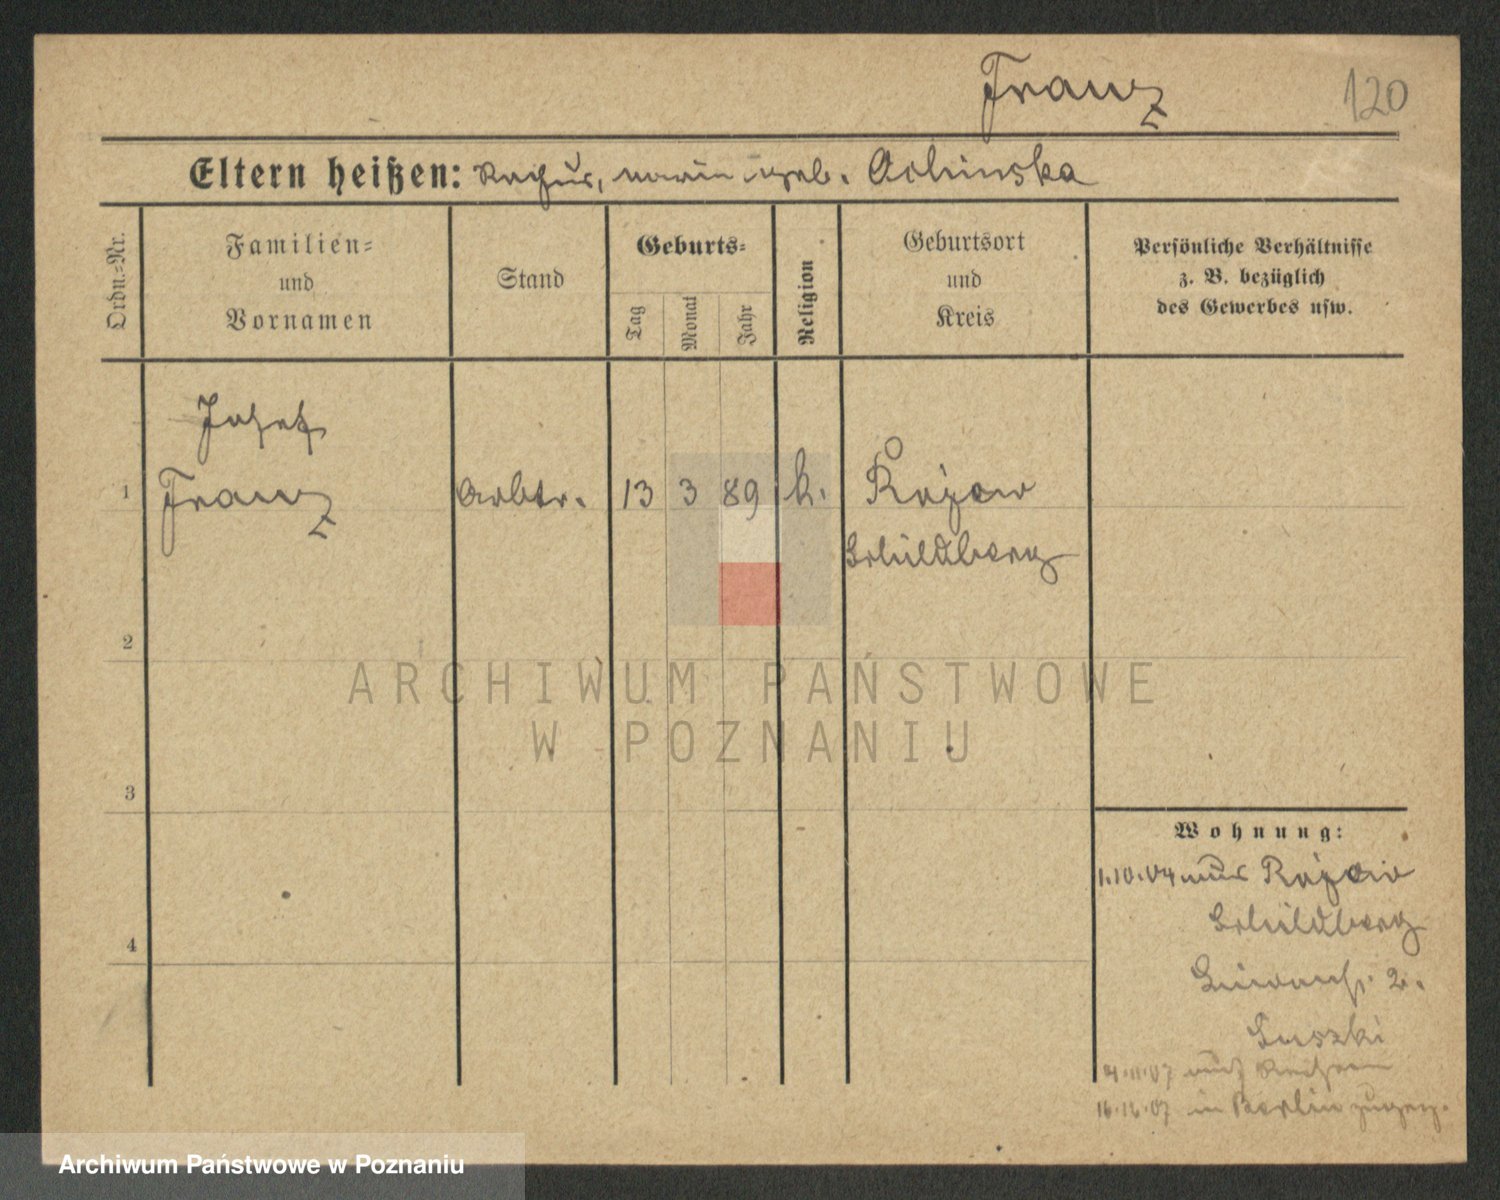 Franz 120
Eltern heißen: geb.
Ordn.=Nr.
Familien=
und
Vornamen
Stand
Geburts=
Tag
Monat
Jahr
Religion
Geburtsort
und
Kreis
Persönliche Verhältnisse
z. B. bezüglich
des Gewerbes usw.
Josef
1 Franz Arbtr. 13 3 89 k. Rojow
Schildberg
2
ARCHIWUM PAŃSTWOWE
W POZNANIU
3
Wohnung:
1.10.04 aus Rojow
Schildberg
4
2.
in Berlin
Archiwum Państwowe w Poznaniu